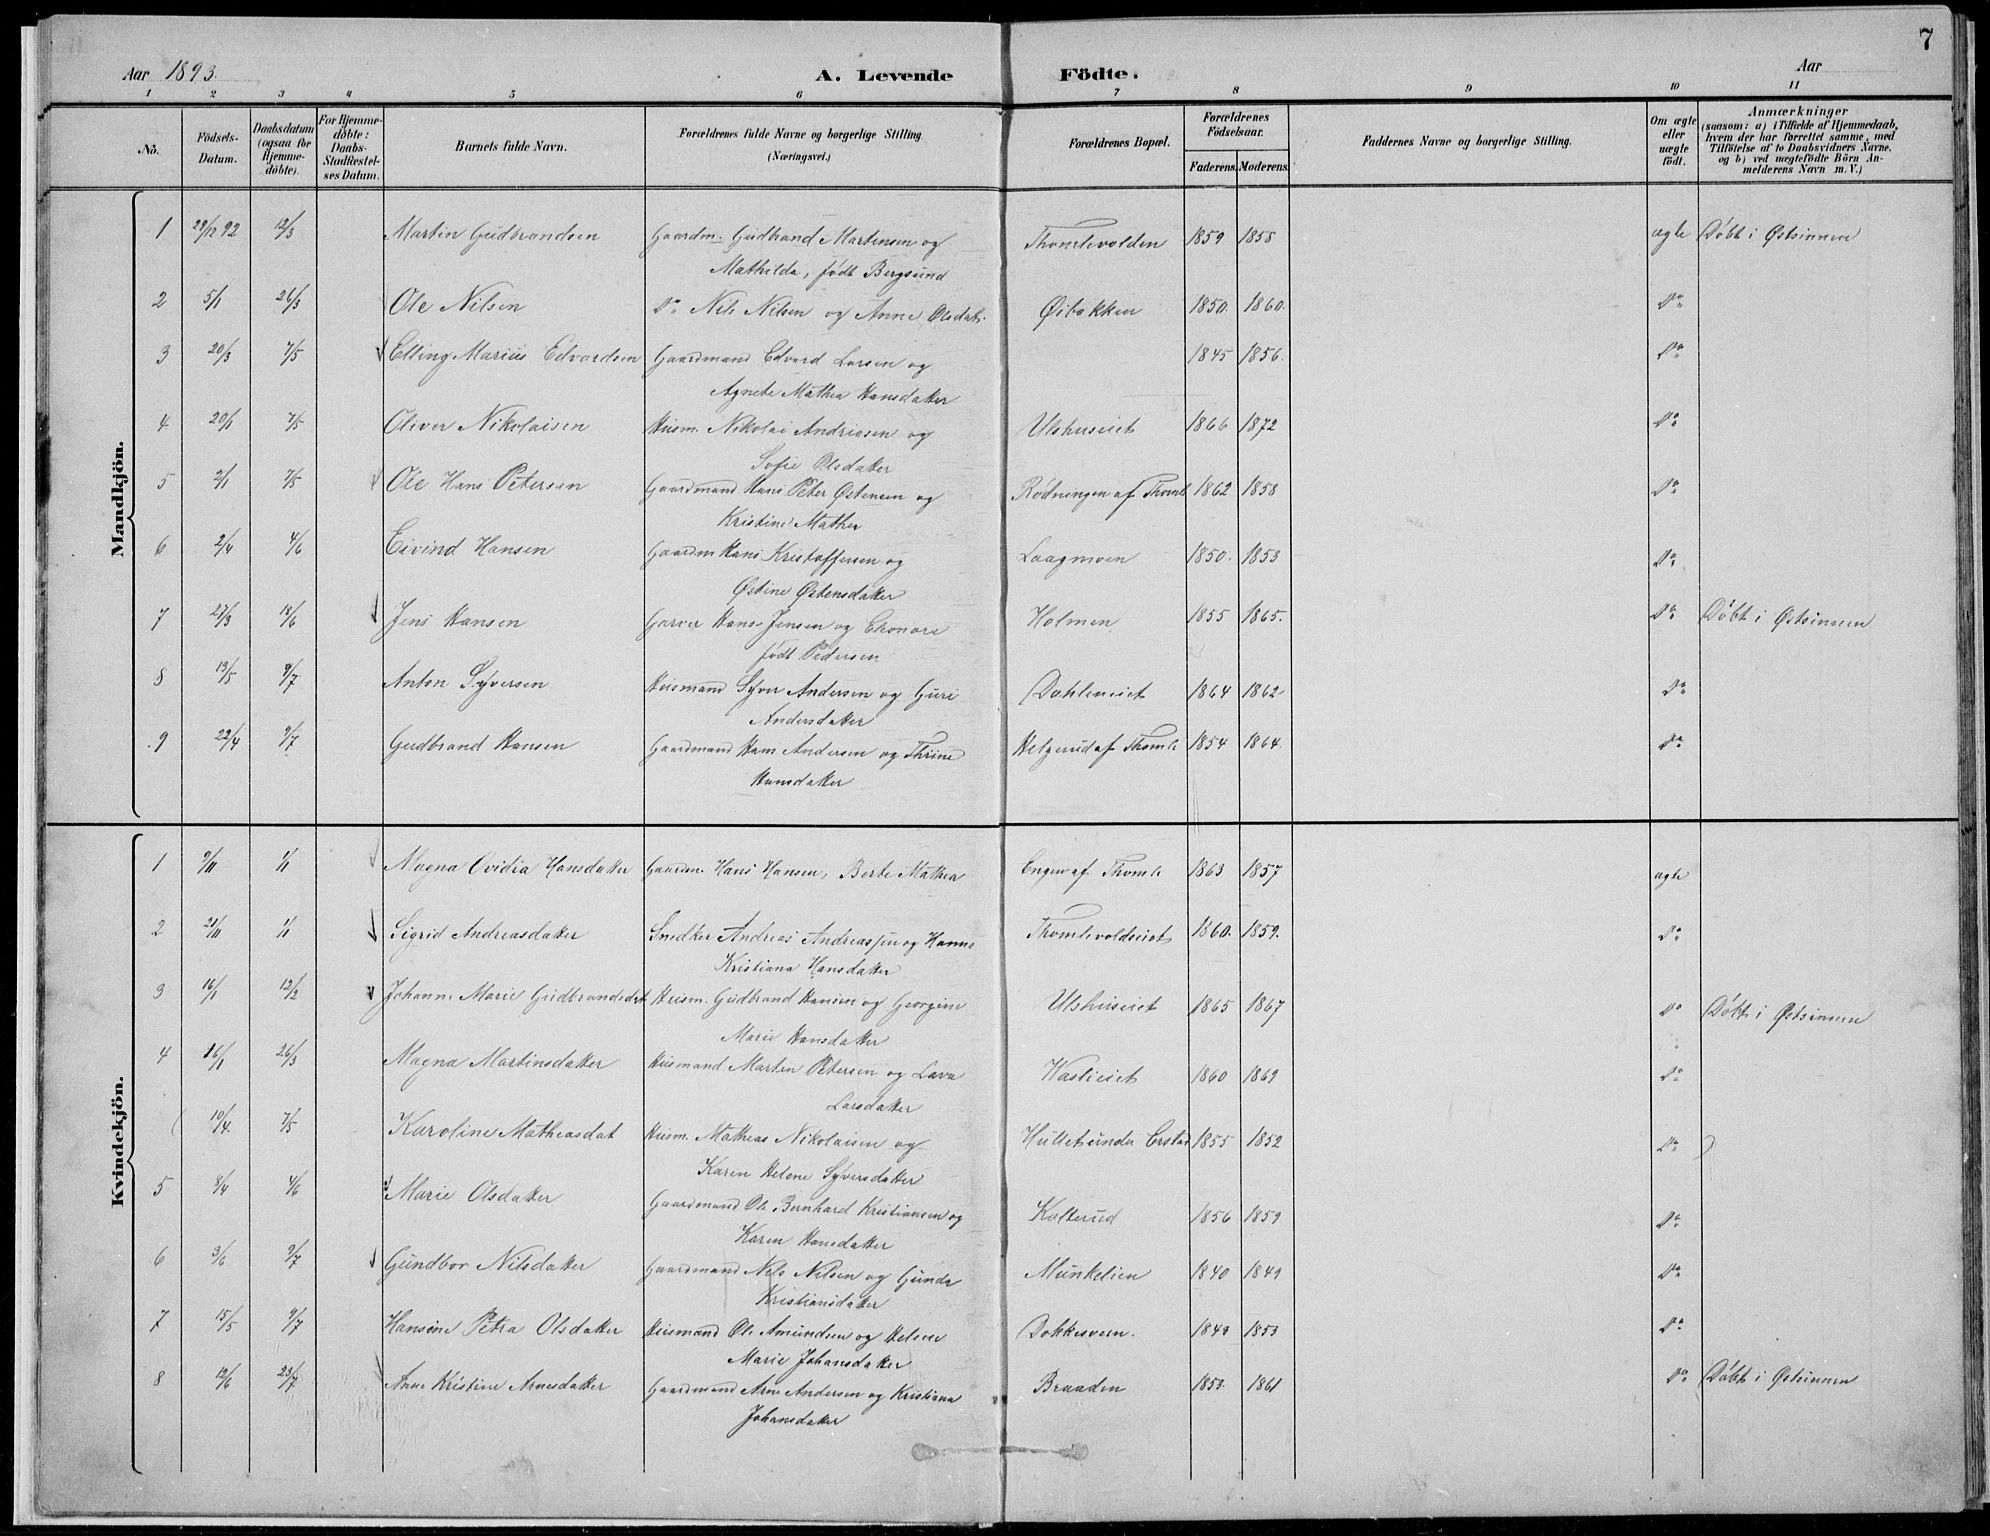 7
Aar 1893. A. Levende Födte. Aar
1 2 3 4 5 6 7 8 9 10 11
No. Födsels-Datum. Daabsdatum (ogsaa för Hjemme-döbte). For Hjemme-döbte: Daabs-Stadfæstel-ses Datum. Barnets fulde Navn. Forældrenes fulde Navne og borgerlige Stilling. (Næringsvei.) Forældrenes Bopæl. Forældrenes Födselsaar. Faderens. Moderens. Faddernes Navne og borgerlige Stilling. Om ægte eller uægte födt. Anmærkninger (saasom: a) i Tilfælde af Hjemmedaab, hvem der har forrettet samme, med Tilföielse af to Daabsvidners Navne, og b) ved uægtefödte Börn An-melderens Navn m. V.)
Mandkjön.
1 29/12 92 12/3 Martin Gudbrandsen Gaardm. Gudbrand Martensen og Thomlevolden 1859 1858 ægte Döbt i Østsinnen
Mathilda, født Bergsund
2 5/1 26/3 Ole Nilsen Do Nils Nilsen og Anne Olsdat. Øibakken 1850. 1860. Do
3 20/3 7/5 Elling Marius Edvardsen Gaardmand Edvard Larsen og 1845 1856. Do
Agnete Mathea Hansdatter
4 20/1 7/5 Oliver Nikolaisen Husm. Nikolai Andreasen og Ulshuseiet 1866 1872 Do
Sofie Olsdatter
5 2/1 7/5 Ole Hans Petersen Gaardmand Hans Peter Østensen og Rødningen af Thomle 1862 1858 Do
Kristine Mathea
6 2/4 4/6 Eivind Hansen Gaardm Hans Kristoffersen og Laagmoen 1850. 1853 Do
Østine Østensdatter
7 27/3 18/6 Jens Hansen Garver Hans Jensen og Eleonore Holmen 1855 1865. Do Döbt i Østsinnen
født Pedersen
8 13/5 9/7 Anton Syversen Husmand Syver Andersen og Guri Dahleneiet 1864 1862 Do
Andersdatter
9 22/4 9/7 Gudbrand Hansen Gaardmand Hans Andersen og Thrine Helgerud af Thomle 1854 1864. Do
Hansdatter
Kvindekjön.
1 9/11 1/1 Magna Ovidia Hansdatter Gaardm. Hans Hansen, Berte Mathea Engen af Thomle 1863 1857 ægte
2 21/11 1/1 Sigrid Andreasdatter Snedker Andreas Andreassen og Hanne Thomlevoldseiet 1860. 1859. Do
Kristiana Hansdatter
3 16/1 12/2 Johanne Marie Gudbrandsdat Husm. Gudbrand Hansen og Georgine Ulshuseiet 1865 1867 Do Döbt i Østsinnen
Marie Hansdatter
4 16/1 26/3 Magna Martinsdatter Husmand Martin Petersen og Lava Haslieiet 1860 1869 Do
Larsdatter
10/4. 7/5 Karoline Matheasdat Husm. Mathias Nikolaisen og Hullet under Erstad 1855 1852 Do
Karen Helene Syversdatter
5 8/4 4/6 Marie Olsdatter Gaardmand Ole Bernhard Kristiansen og Kolterud 1856 1859 Do
Karen Hansdatter
6 3/6 9/7 Gundbor Nilsdatter Gaardmand Nils Nilsen og Gunda Munkelien 1840 1849 Do
Kristiansdatter
7 15/5 9/7 Hansine Petra Olsdatter Husmand Ole Amundsen og Helene Dokkesveen. 1843 1853 Do
Marie Johansdatter
8 12/6 23/7 Anne Kristine Arnesdatter Gaardmand Arne Andersen og Kristiana Braaden 1853. 1861 Do Döbt i Østsinnen
Johansdatter